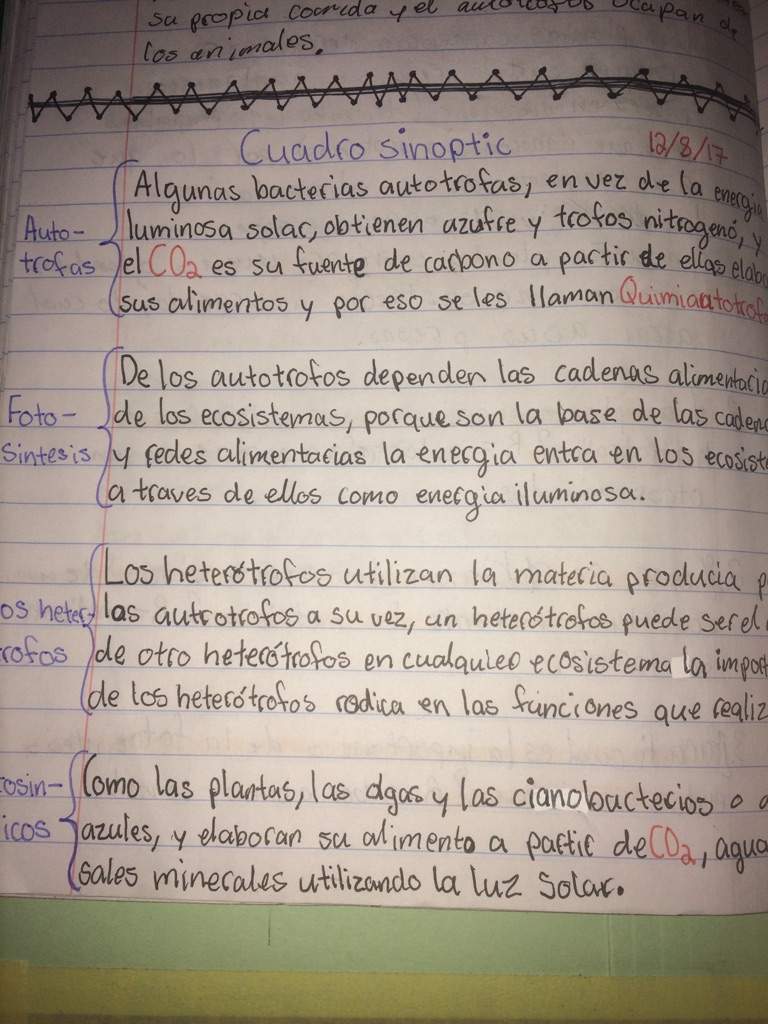 su propia comida y el autótrofos ocupan de
los animales.
Cuadro sinoptic 12/8/17
Algunas bacterias autotrofas, en vez de la energia
Auto- luminosa solar, obtienen azufre y trofos nitrogenó, y
trofas el CO2 es su fuente de carbono a partir de ellas elabo
sus alimentos y por eso se les llaman Quimiautotrofo
De los autotrofos dependen las cadenas alimentacio
Foto- de los ecosistemas, porque son la base de las caden
Sintesis y redes alimentarias la energia entra en los ecosiste
a traves de ellos como energia iluminosa.
Los heterótrofos utilizan la materia producia p
os heter las autrotrofos a su vez, un heterótrofos puede ser el
rofos de otro heterótrofos en cualquieo ecosistema la import
de los heterótrofos radica en las funciones que realiz
osin- Como las plantas, las algas y las cianobacterios o a
icos azules, y elaboran su alimento a partir de CO2, agua
sales minerales utilizando la luz solar.